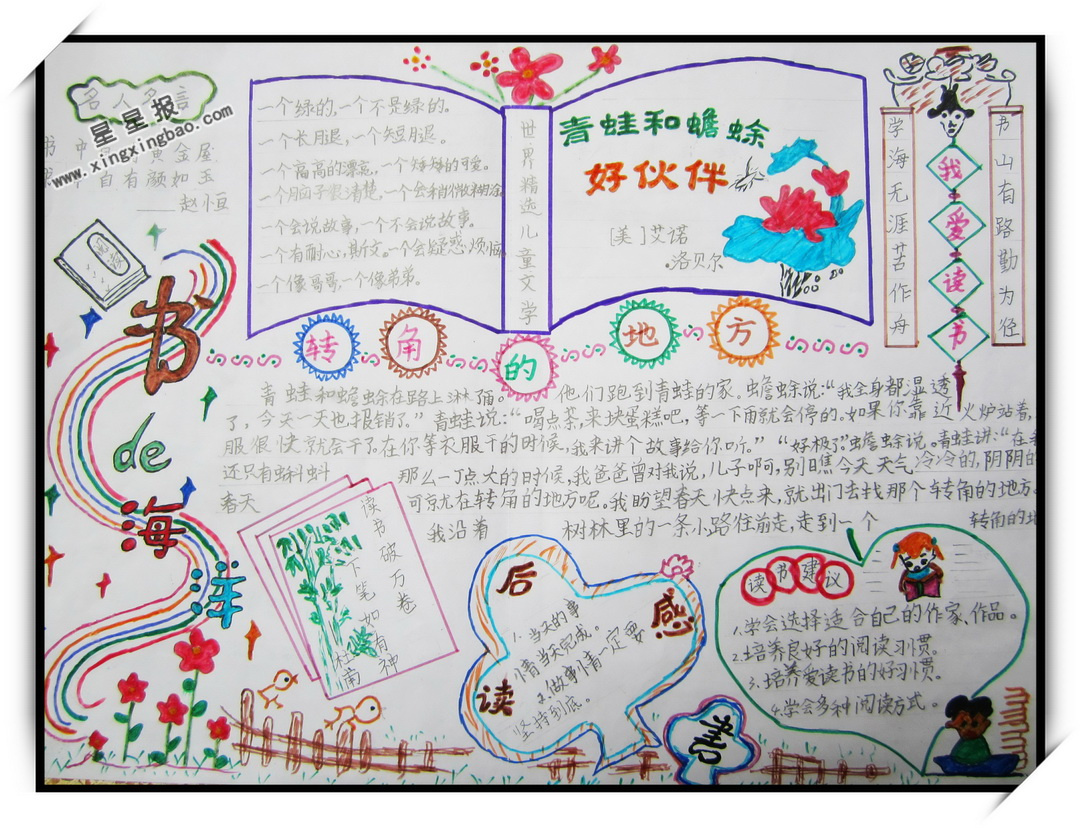 名人名言
星星报
www.xingxingbao.com
书中自有黄金屋
自有颜如玉
——赵恒
书de海洋
一个绿的,一个不是绿的。
一个长腿,一个短腿。
一个高高的漂亮,一个矮矮的可爱。
一个脑子很清楚,一个会稍微糊涂
一个会说故事,一个不会说故事。
一个有耐心,斯文。一个会疑惑,烦恼
一个像哥哥一个像弟弟。
世界精选儿童文学
青蛙和蟾蜍
好伙伴
[美]艾诺
·洛贝尔
学海无涯苦作舟
我爱读书
书山有路勤为径
转角的地方
青蛙和蟾蜍在路上淋了雨。 他们跑到青蛙的家。蟾蜍说:“我全身都湿透
了,今天一天也报销了。”青蛙说:“喝点茶,来块蛋糕吧,等一下雨就会停的。如果你靠近火炉站着,
服很快就会干了。在你等衣服干的时候,我来讲个故事给你听。”“好极了”蟾蜍说。青蛙讲:“在
还只有蝌蚪 那么一丁点大的时候,我爸爸曾对我说,儿子啊,别瞧今天天气冷冷的,阴阴的
春天 可就在转角的地方呢。我盼望春天快点来,就出门去找那个转角的地方。
我沿着 树林里的一条小路往前走,走到一个 转角的地
读书破万卷
下笔如有神
杜甫
读后感
1.当天的事
情当天完成。
2.做事情一定要
坚持到底。
读书建议
1.学会选择适合自己的作家、作品。
2.培养良好的阅读习惯。
3.培养爱读书的好习惯。
4.学会多种阅读方式。